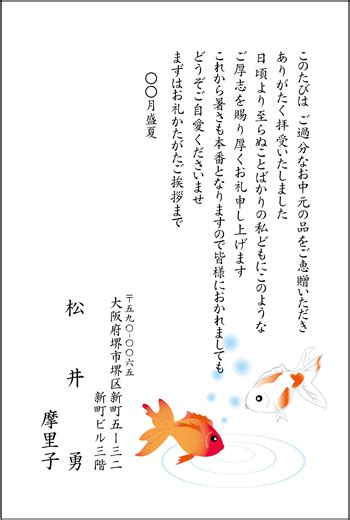 このたびは ご過分なお中元の品をご恵贈いただき
ありがたく拝受いたしました
日頃より至らぬことばかりの私どもにこのような
ご厚志を賜り厚くお礼申し上げます
これから暑さも本番となりますので皆様におかれましても
どうぞご自愛くださいませ
まずはお礼かたがたご挨拶まで
〇〇月盛夏
〒五九〇-〇〇六五
大阪府堺市堺区新町五ー三二
新町ビル三階
松井 勇
摩里子